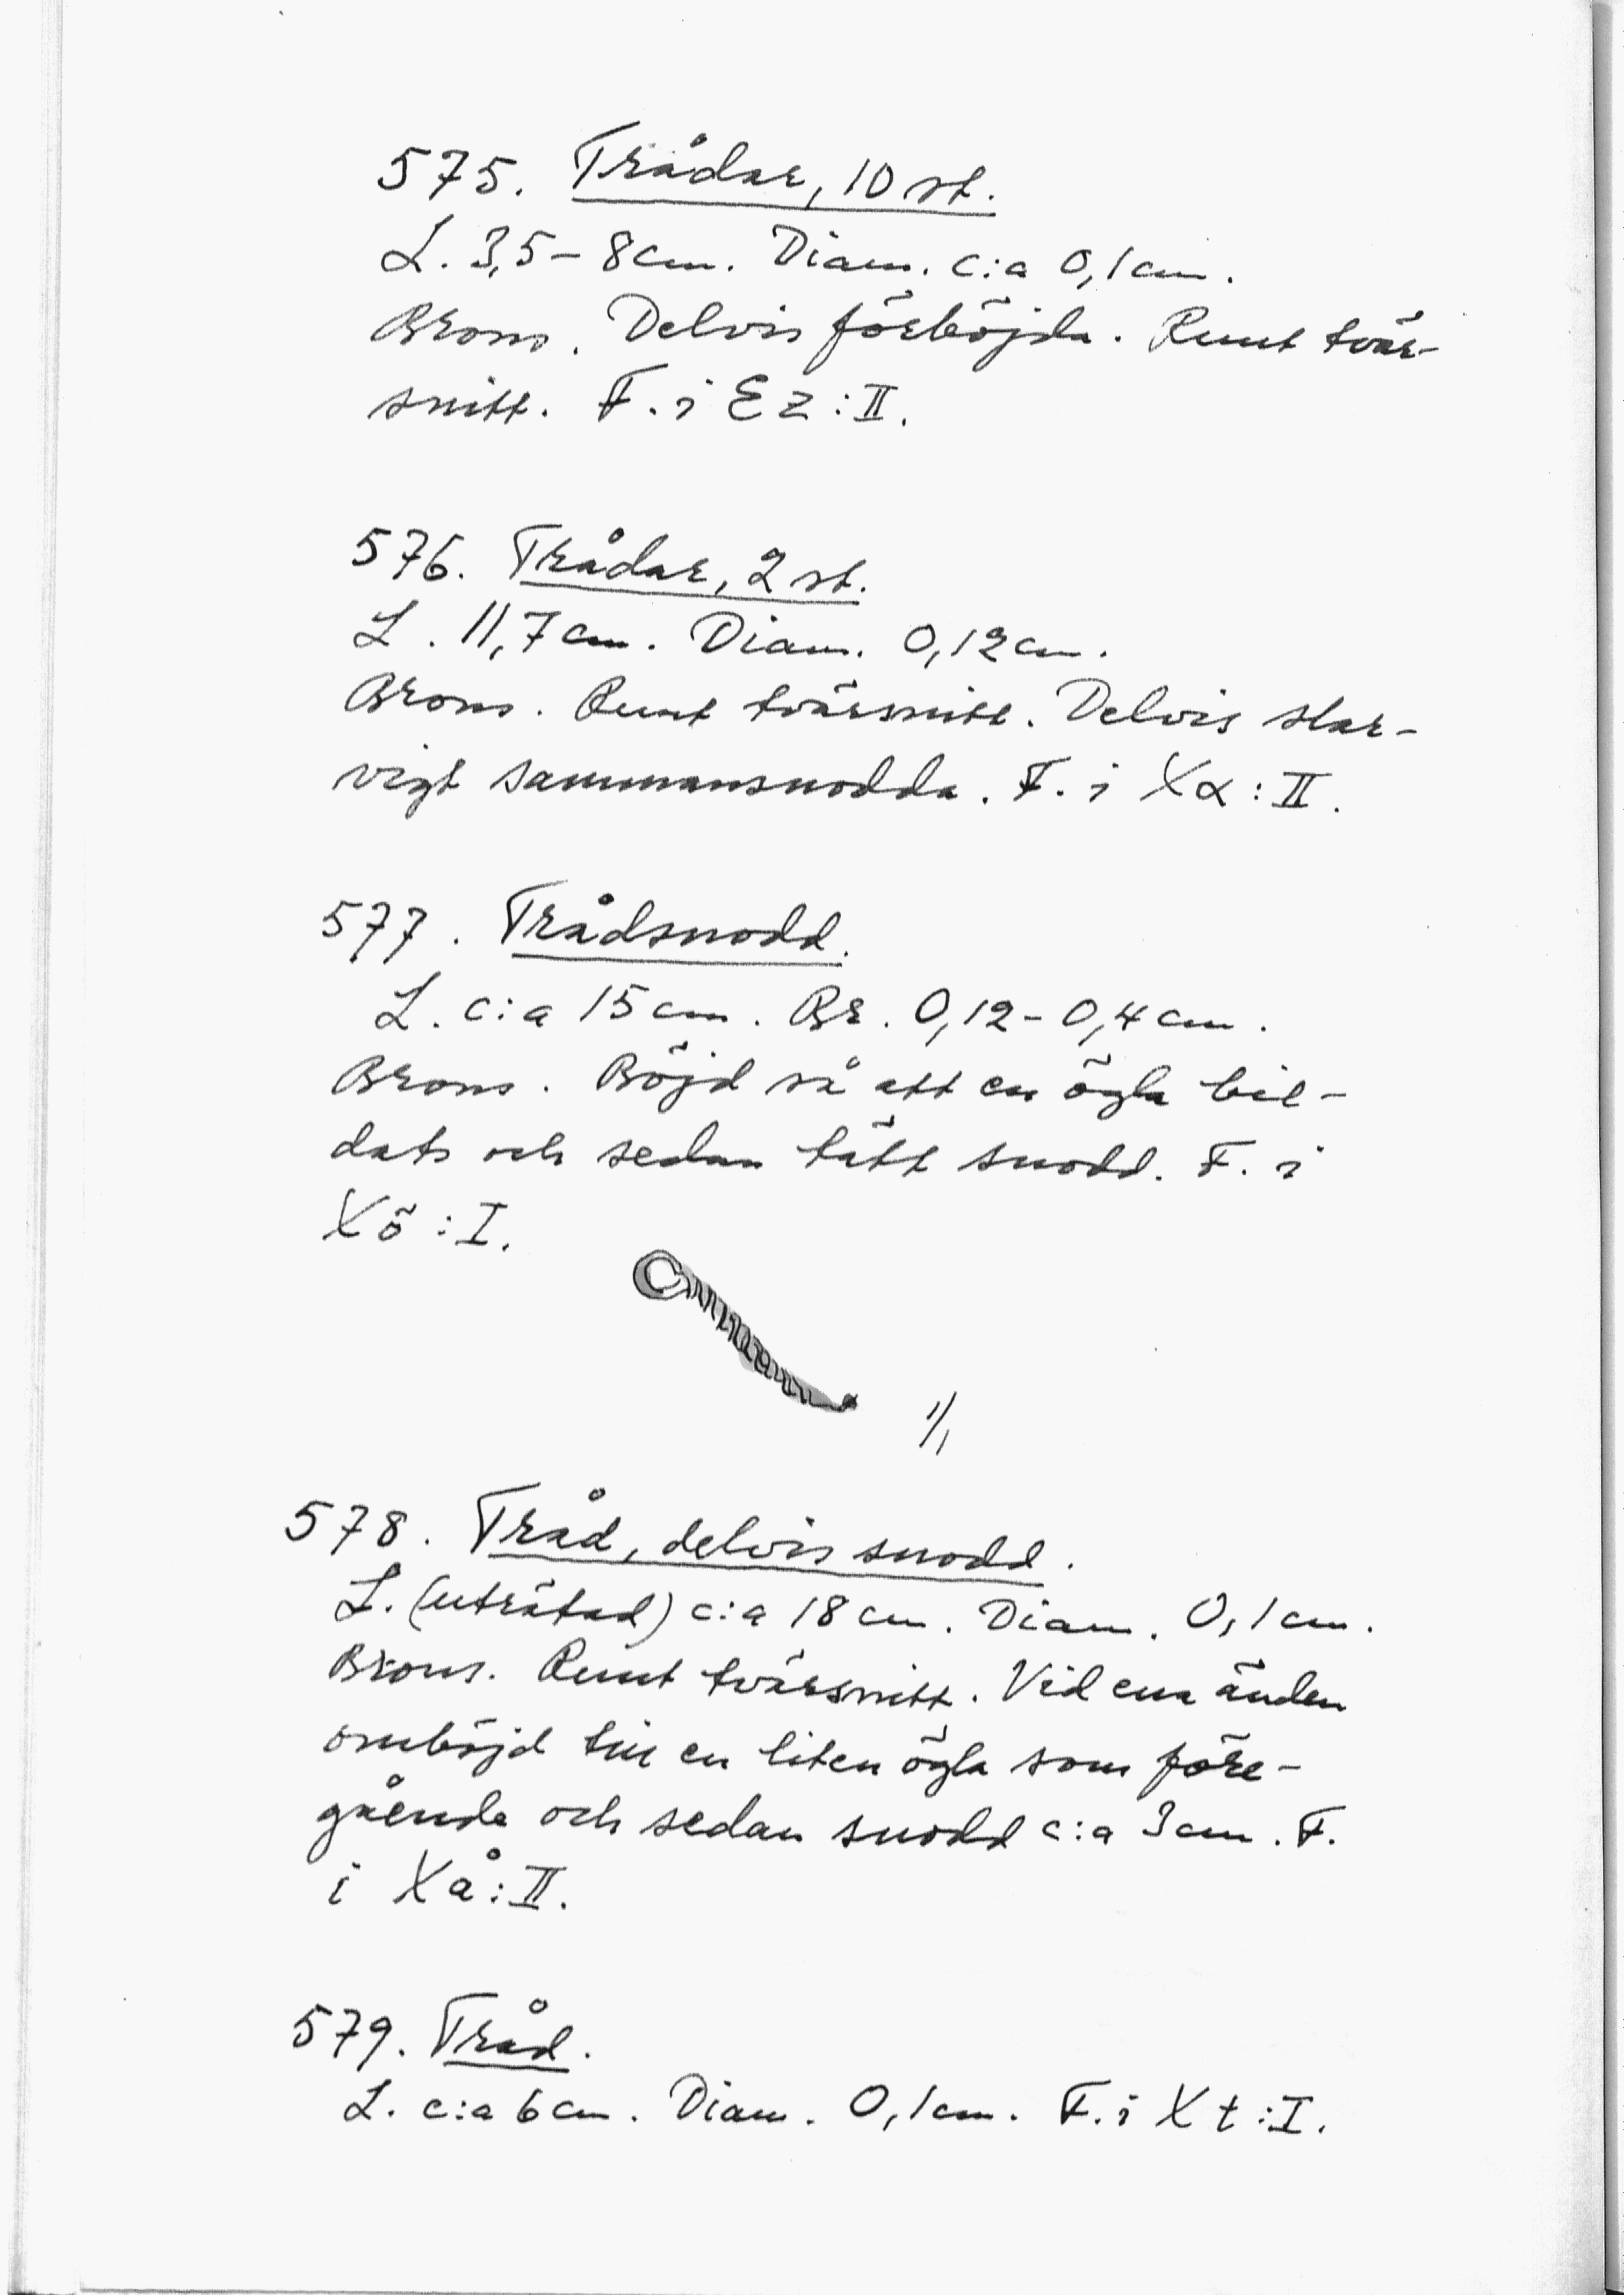 575. Trådar, 10 st.
L. 3,5 – 8 cm. Diam. c:a 0,1 cm.
Brons. Delvis förböjda. Runt tvär-
snitt. F. i Ez : II.
576. Trådar, 2 st.
L. 11,7 cm. Diam. 0,12 cm.
Brons. Runt tvärsnitt. Delvis slar-
vigt sammansnodda. F. i Xα : II.
577. Trådsnodd.
L. c:a 15 cm. Br. 0,12 – 0,4 cm.
Brons. Böjd så att en ögla bil-
dats och sedan tätt snodd. F. i
Xö : I.
1/1
578. Tråd, delvis snodd.
L. (uträtad) c:a 18 cm. Diam. 0,1 cm.
Brons. Runt tvärsnitt. Vid ena änden
omböjd till en liten ögla som före-
gående och sedan snodd c:a 3 cm. F.
i Xå : II.
579. Tråd.
L. c:a 6 cm. Diam. 0,1 cm. F. i Xt : I.